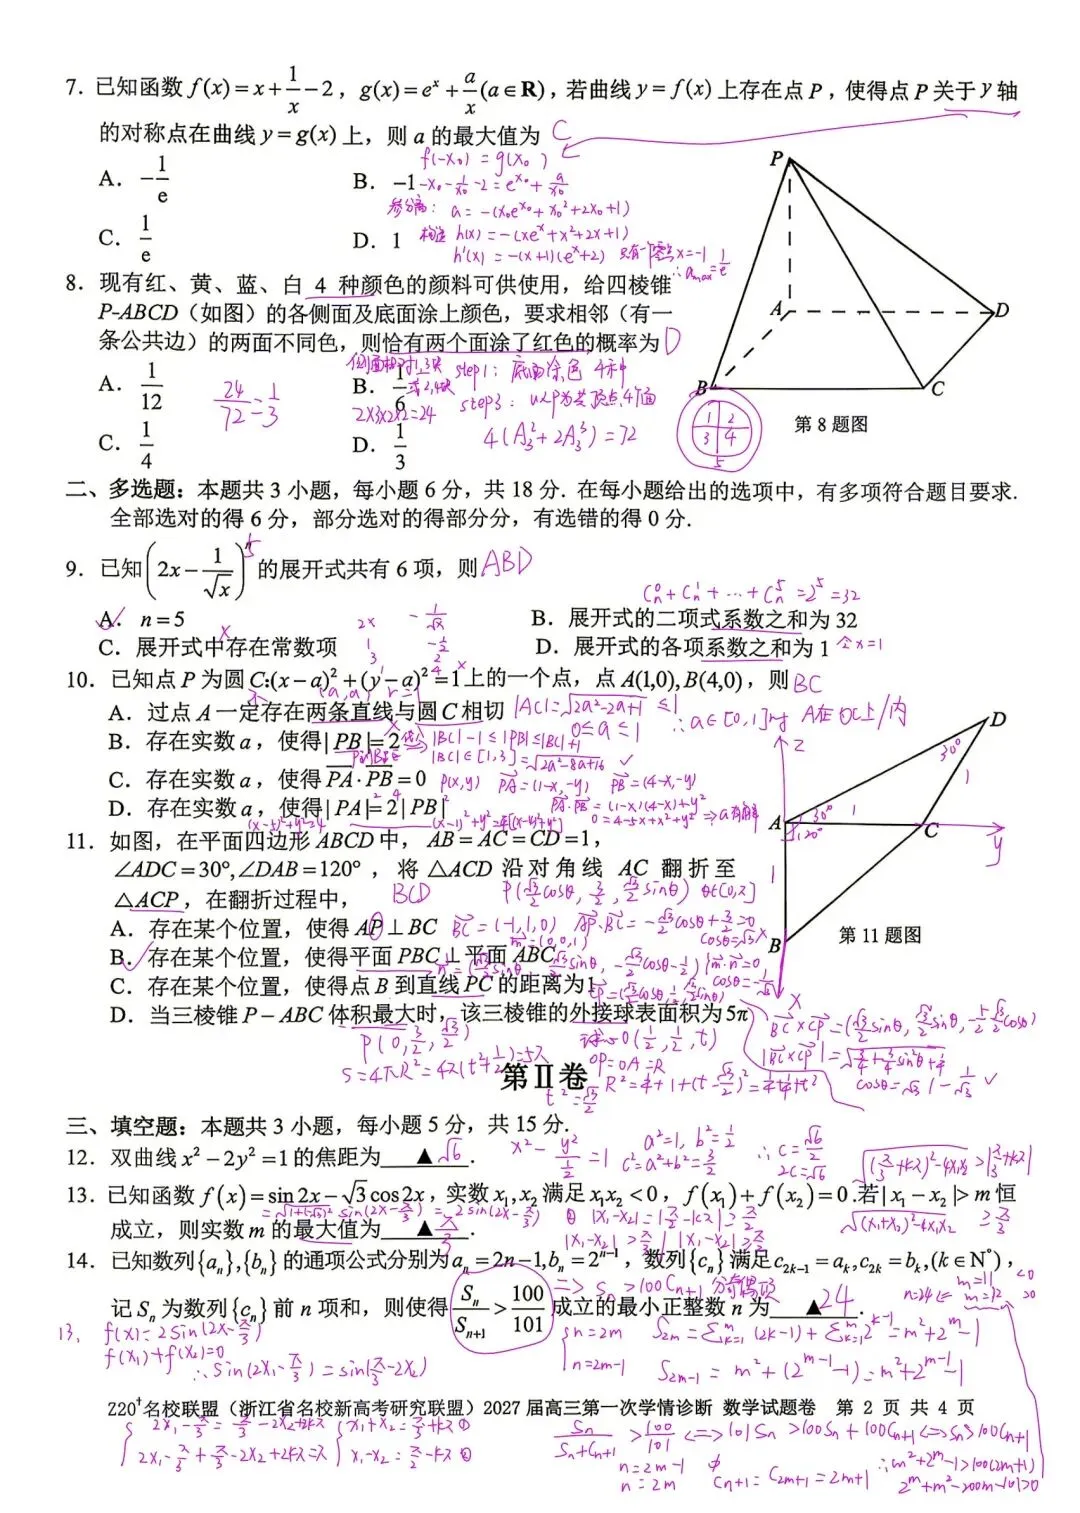 7. 已知函数 f(x)=x+1/x−2，g(x)=eˣ+a/x(a∈R)，若曲线 y=f(x) 上存在点 P，使得点 P 关于 y 轴
的对称点在曲线 y=g(x) 上，则 a 的最大值为 C
f(-x₀)=g(x₀)
A. −1/e
B. −1
-x₀-1/x₀-2=e^x₀+a/x₀
a=-(x₀e^x₀+x₀²+2x₀+1)
C. 1/e
D. 1
构造 h(x)=-(xeˣ+x²+2x+1)
h'(x)=-(x+1)(eˣ+2) 只有一个零点x=-1
∴a_max=1/e
8. 现有红、黄、蓝、白 4 种颜色的颜料可供使用，给四棱锥
P-ABCD（如图）的各侧面及底面涂上颜色，要求相邻（有一
条公共边）的两面不同色，则恰有两个面涂了红色的概率为 D
step1: 底面涂色 4种
A. 1/12
B. 1/6
C. 1/4
D. 1/3
24/72=1/3
2×3×2×2=24
4(A₃²+2A₃³)=72
P
A
D
B
C
1 2
3 4
5
第 8 题图
二、多选题：本题共 3 小题，每小题 6 分，共 18 分. 在每小题给出的选项中，有多项符合题目要求.
全部选对的得 6 分，部分选对的得部分分，有选错的得 0 分.
9. 已知(2x−1/√x)ⁿ的展开式共有 6 项，则 ABD
5
Cₙ⁰+Cₙ¹+…+Cₙ⁵=2⁵=32
A. n=5
B. 展开式的二项式系数之和为 32
C. 展开式中存在常数项
D. 展开式的各项系数之和为 1 令x=1
10. 已知点 P 为圆 C:(x−a)²+(y−a)²=1上的一个点，点 A(1,0),B(4,0)，则 BC
(a,a) r=1
A. 过点 A 一定存在两条直线与圆 C 相切 |AC|=√(2a²-2a+1)≤1
0≤a≤1
∴a∈[0,1]时 A在⊙C上/内
B. 存在实数 a，使得|PB|=2 |BC|-1≤|PB|≤|BC|+1
|BC|∈[1,3]=√(2a²-8a+16) ✓
C. 存在实数 a，使得 PA·PB=0 P(x,y) PA=(1-x,-y) PB=(4-x,-y)
PA·PB=(1-x)(4-x)+y²
0=4-5x+x²+y² ⇒a有解
D. 存在实数 a，使得|PA|=2|PB|
11. 如图，在平面四边形 ABCD 中，AB=AC=CD=1，
∠ADC=30°,∠DAB=120°，将 △ACD 沿对角线 AC 翻折至
△ACP，在翻折过程中， BCD
P(√3/2cosθ, 3/2, √3/2sinθ) θ∈[0,π]
A. 存在某个位置，使得 AP⊥BC BC=(-1,1,0) AP·BC=-√3/2cosθ+3/2=0
cosθ=√3 ×
B. 存在某个位置，使得平面 PBC⊥平面 ABC
C. 存在某个位置，使得点 B 到直线 PC 的距离为1
D. 当三棱锥 P−ABC 体积最大时，该三棱锥的外接球表面积为 5π
D
30°
1
z
A
30°
1
C
y
120°
1
B
x
第 11 题图
P(0,3/2,√3/2)
球心O(1/2,1/2,t)
OP=OA=R
第Ⅱ卷
三、填空题：本题共 3 小题，每小题 5 分，共 15 分.
12. 双曲线 x²−2y²=1的焦距为 ▲ √6 .
x²-y²/(1/2)=1
a²=1, b²=1/2
c²=a²+b²=3/2
∴c=√6/2
2c=√6
13. 已知函数 f(x)=sin2x−√3cos2x，实数 x₁,x₂ 满足 x₁x₂<0，f(x₁)+f(x₂)=0.若|x₁−x₂|>m恒
成立，则实数 m 的最大值为 ▲ π/3 .
14. 已知数列{aₙ},{bₙ}的通项公式分别为 aₙ=2n−1,bₙ=2ⁿ⁻¹，数列{cₙ}满足 c₂ₖ₋₁=aₖ,c₂ₖ=bₖ,(k∈N*)，
记 Sₙ 为数列{cₙ}前 n 项和，则使得 Sₙ/Sₙ₊₁>100/101 成立的最小正整数 n 为 ▲ 24 .
=> Sₙ>100Cₙ₊₁ 分奇偶项
n=2m S₂ₘ=Σₖ₌₁ᵐ(2k-1)+Σₖ₌₁ᵐ2ᵏ⁻¹=m²+2ᵐ-1
n=2m-1 S₂ₘ₋₁=m²+(2ᵐ⁻¹-1)=m²+2ᵐ⁻¹-1
13. f(x)=2sin(2x-π/3)
f(x₁)+f(x₂)=0
∴sin(2x₁-π/3)=sin(π/3-2x₂)
220⁺名校联盟（浙江省名校新高考研究联盟）2027 届高三第一次学情诊断 数学试题卷 第 2 页 共 4 页
2x₁-π/3=π/3-2x₂+2kπ
x₁+x₂=π/3+kπ ①
2x₁-π/3+π/3-2x₂+2kπ=π
x₁-x₂=π/2-kπ ②
Sₙ/(Sₙ+Cₙ₊₁)>100/101 <=> 101Sₙ>100Sₙ+100Cₙ₊₁ <=> Sₙ>100Cₙ₊₁
n=2m-1
n=2m Cₙ₊₁=C₂ₘ₊₁=2m+1
∴m²+2ᵐ-1>100(2m+1)
2ᵐ+m²-200m-101>0